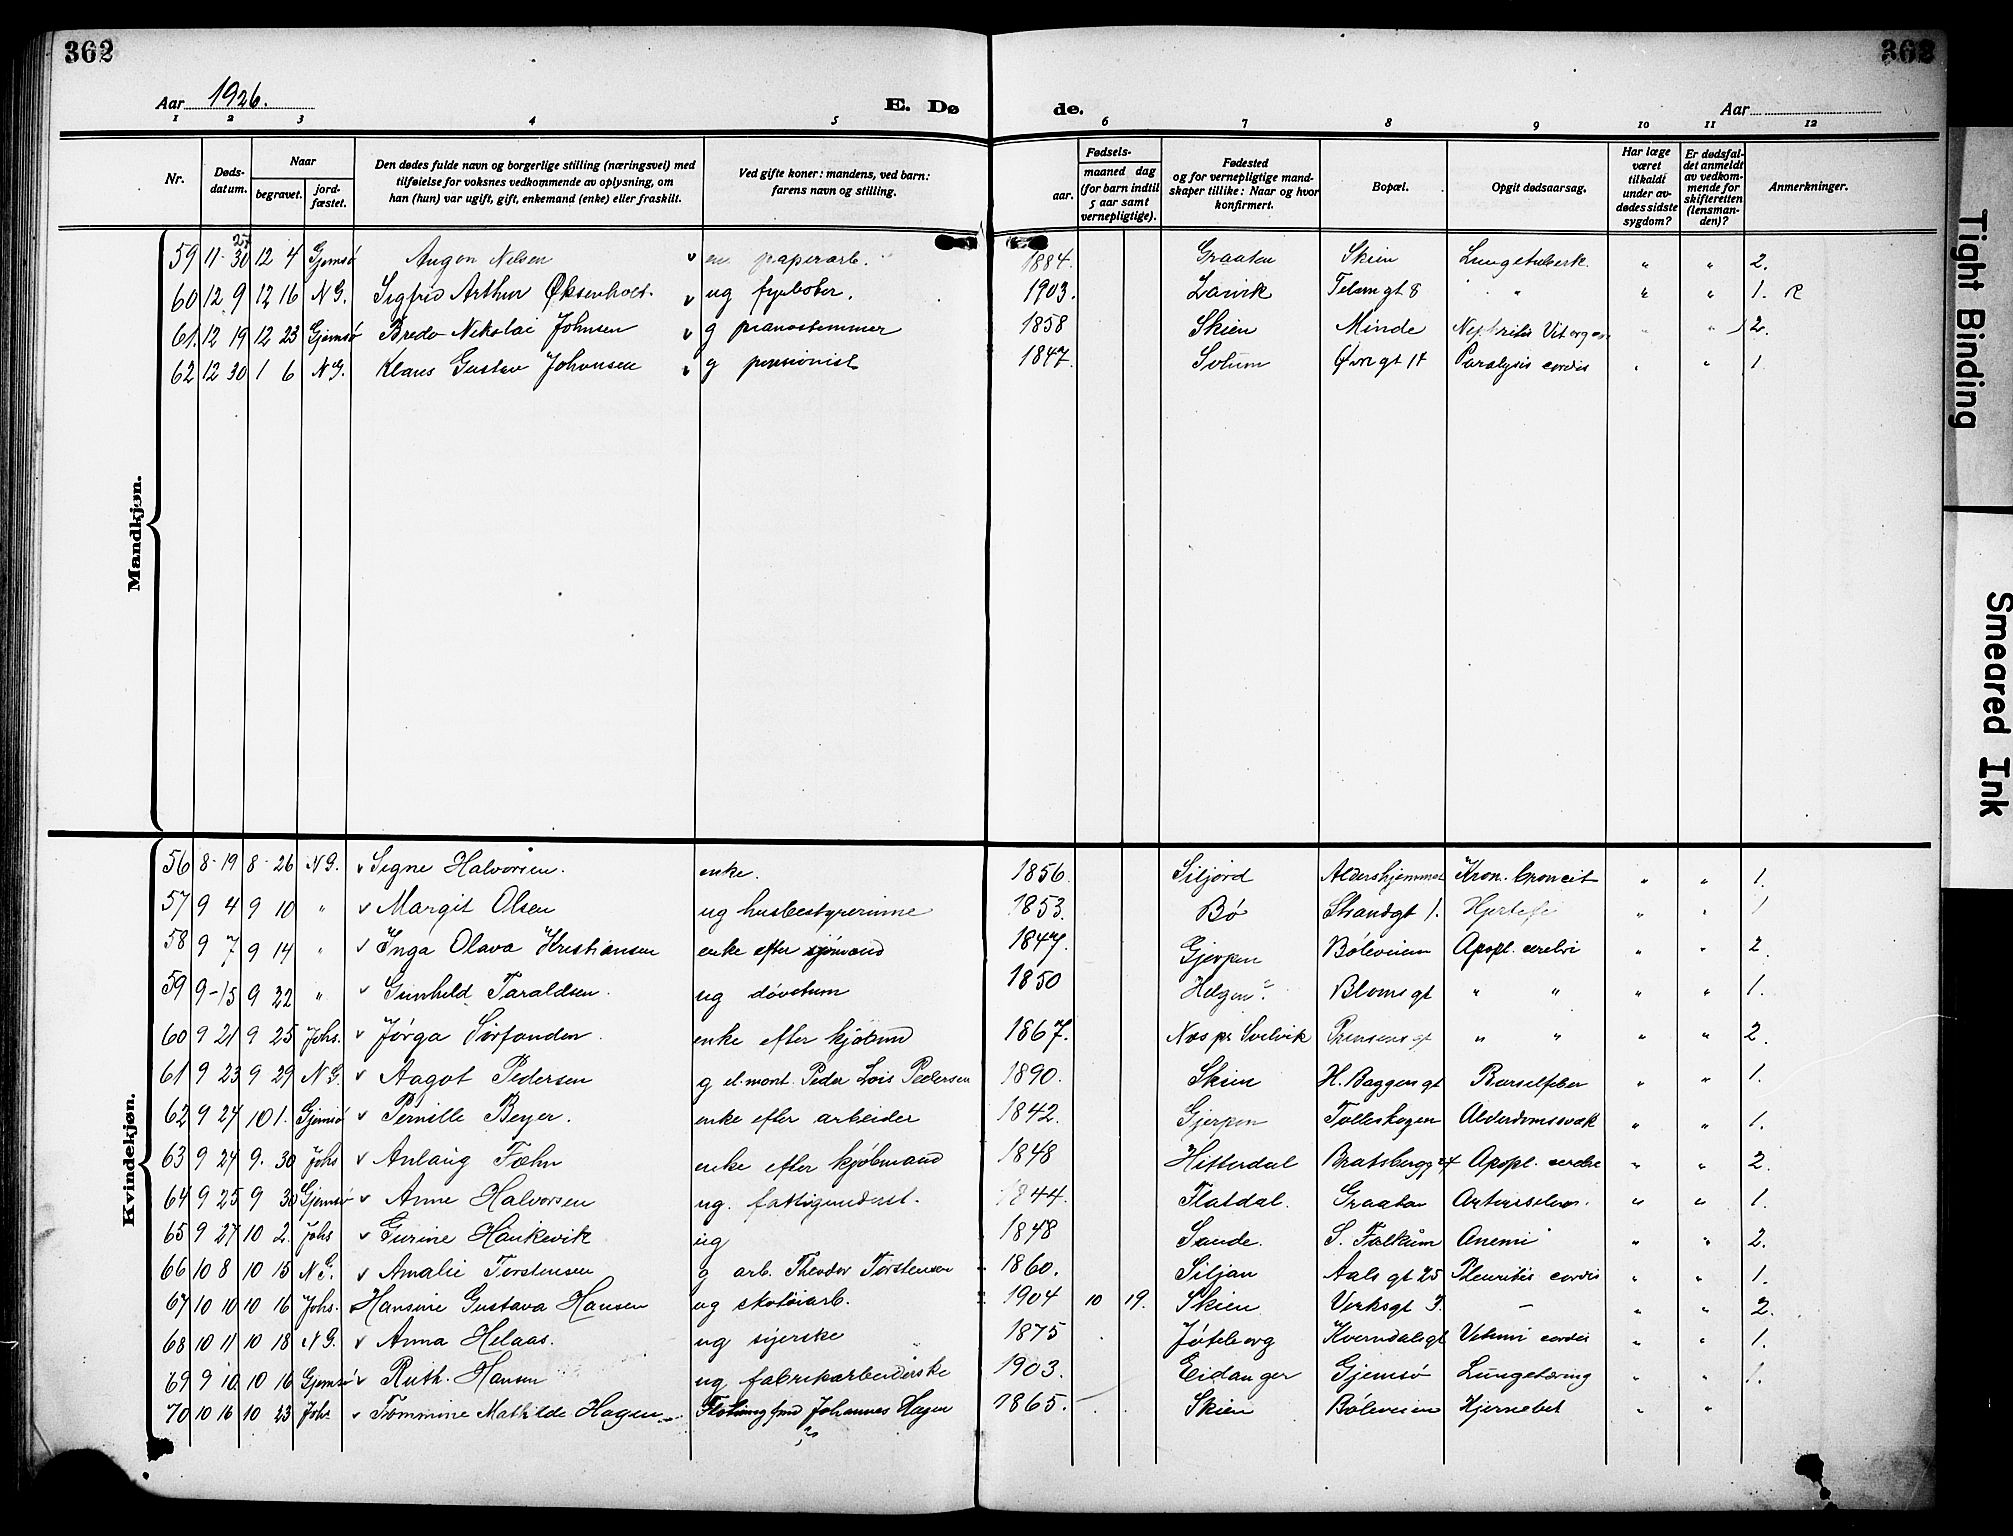 362
362
Aar 1926.
E. Dø
de.
Aar
1 2 3 4 5 6 7 8 9 10 11 12
Nr.
Døds-
datum.
Naar
begravet.
jord-
fæstet.
Den dødes fulde navn og borgerlige stilling (næringsvei) med
tilføielse for voksnes vedkommende av oplysning, om
han (hun) var ugift, gift, enkemand (enke) eller fraskilt.
Ved gifte koner: mandens, ved barn:
farens navn og stilling.
Fødsels-
aar.
maaned dag
(for barn indtil
5 aar samt
vernepligtige).
Fødested
og for vernepligtige mand-
skaper tillike: Naar og hvor
konfirmert.
Bopæl.
Opgit dødsaarsag.
Har læge
været
tilkaldt
under av-
dødes sidste
sygdom?
Er dødsfal-
det anmeldt
av vedkom-
mende for
skifteretten
(lensman-
den)?
Anmerkninger.
Mandkjøn.
59 11 30 27 12 4 Gjemsø Nilsen papirarb. 1884. Graaten Skien Lungetuberk. " " 2.
60 12 9 12 16 N G. Sigfrid Arthur Øksenholt ug fyrbøter. 1903. Larvik Telemgt 8 " " " 1. R
61. 12 19 12 23 Gjemsø Bredo Nikolai Johnsen g pianostemmer 1858 Skien Minde Nephritis Vit org " " 2.
62 12 30 1 6 N G. Klaus Gustav Johnnsen g pensionist 1847 Solum Øvregt 14 Paralysis cordis " " 1
Kvindekjøn.
56 8-19 8-26 N G. v Signe Halvorsen. enke. 1856. Siljord Aldershjemmet Kron. bronkit " " 1.
57 9 4 9 10 " v Margit Olsen ug husbestyrerinne 1853. Bø Strandgt 1. Hjertefe " " 1
58 9 7 9 14 " v Inga Olava Kristiansen enke efter sjømand 1847. Gjerpen Bøleveien Apopl. cerebri " " 2
59 9-15 9 22 " v Gunhild Taraldsen. ug døvstum 1850 Helgen? Blomsgt " " " " 1.
60 9 21 9 25 Johs. v Jørga Sørfonden enke efter kjøbmd 1867. Næs pr Svelvik Prinsensgt " " " " 2.
61 9 23 9 29 N G. v Aagot Pedersen g el. mont. Peder Lois Pedersen 1890. Skien H. Baggersgt Barselfeber " " 1.
62 9 27 10 1. Gjemsø v Pernille Beyer. enke efter arbeider 1842. Gjerpen Tolleskogen Alderdomssvak " " 1.
63 9 24 9. 30 Johs v Anlaug Fæhn enke efter kjøbmand 1848 Hitterdal Bratsberggt Apopl. cerebr " " 2.
64 9 25 9 30 Gjemsø v Anne Halvorsen ug. fattigunderst. 1844. Flatdal. Graaten Arteriosclero. " " 1.
65 9 27 10 2. Johs v Gurine Haukevik ug 1848 Sande. S. Falkum Anemi " " 2.
66 10 8 10 15 N G. v Amalie Torstensen g arb. Theodor Torstensen 1860. Siljan Aalsgt 25 cordis " " 1.
67 10 10 10 16 Johs. Hansine Gustava Hansen ug skotøiarb. 1904 10 19. Skien Verksgt 3. — " " 2.
68 10 11 10 18 N G. v Anna Helaas. ug syerske 1875 Jøteborg Kverndalsgt Vitium cordis " " 1.
69 9 10 10 16 Gjemsø v Ruth. Hansen ug fabrikarbeiderske 1903. Eidanger Gjemsø Lungetæring " " 1.
70 10 16 10 23 Johs v Tommine Mathilde Hagen Johannes Hagen 1865. Skien Bøleveien Hjerneblt " "
Tight Binding
Smeared Ink